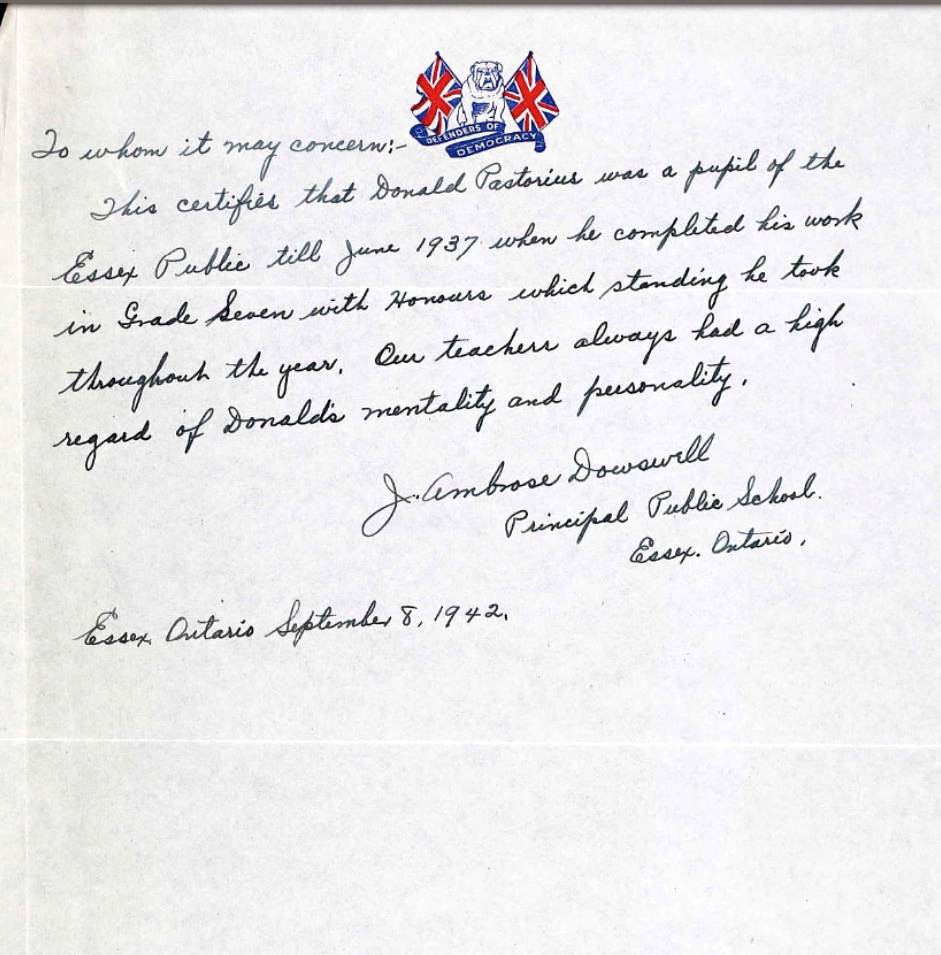 DEFENDERS OF
DEMOCRACY
To whom it may concern:-
This certifies that Donald Pastorius was a pupil of the
Essex Public till June 1937 when he completed his work
in Grade Seven with Honours which standing he took
throughout the year. Our teachers always had a high
regard of Donald's mentality and personality.
J. Ambrose Dowswell
Principal Public School.
Essex. Ontario.
Essex Ontario September 8, 1942.